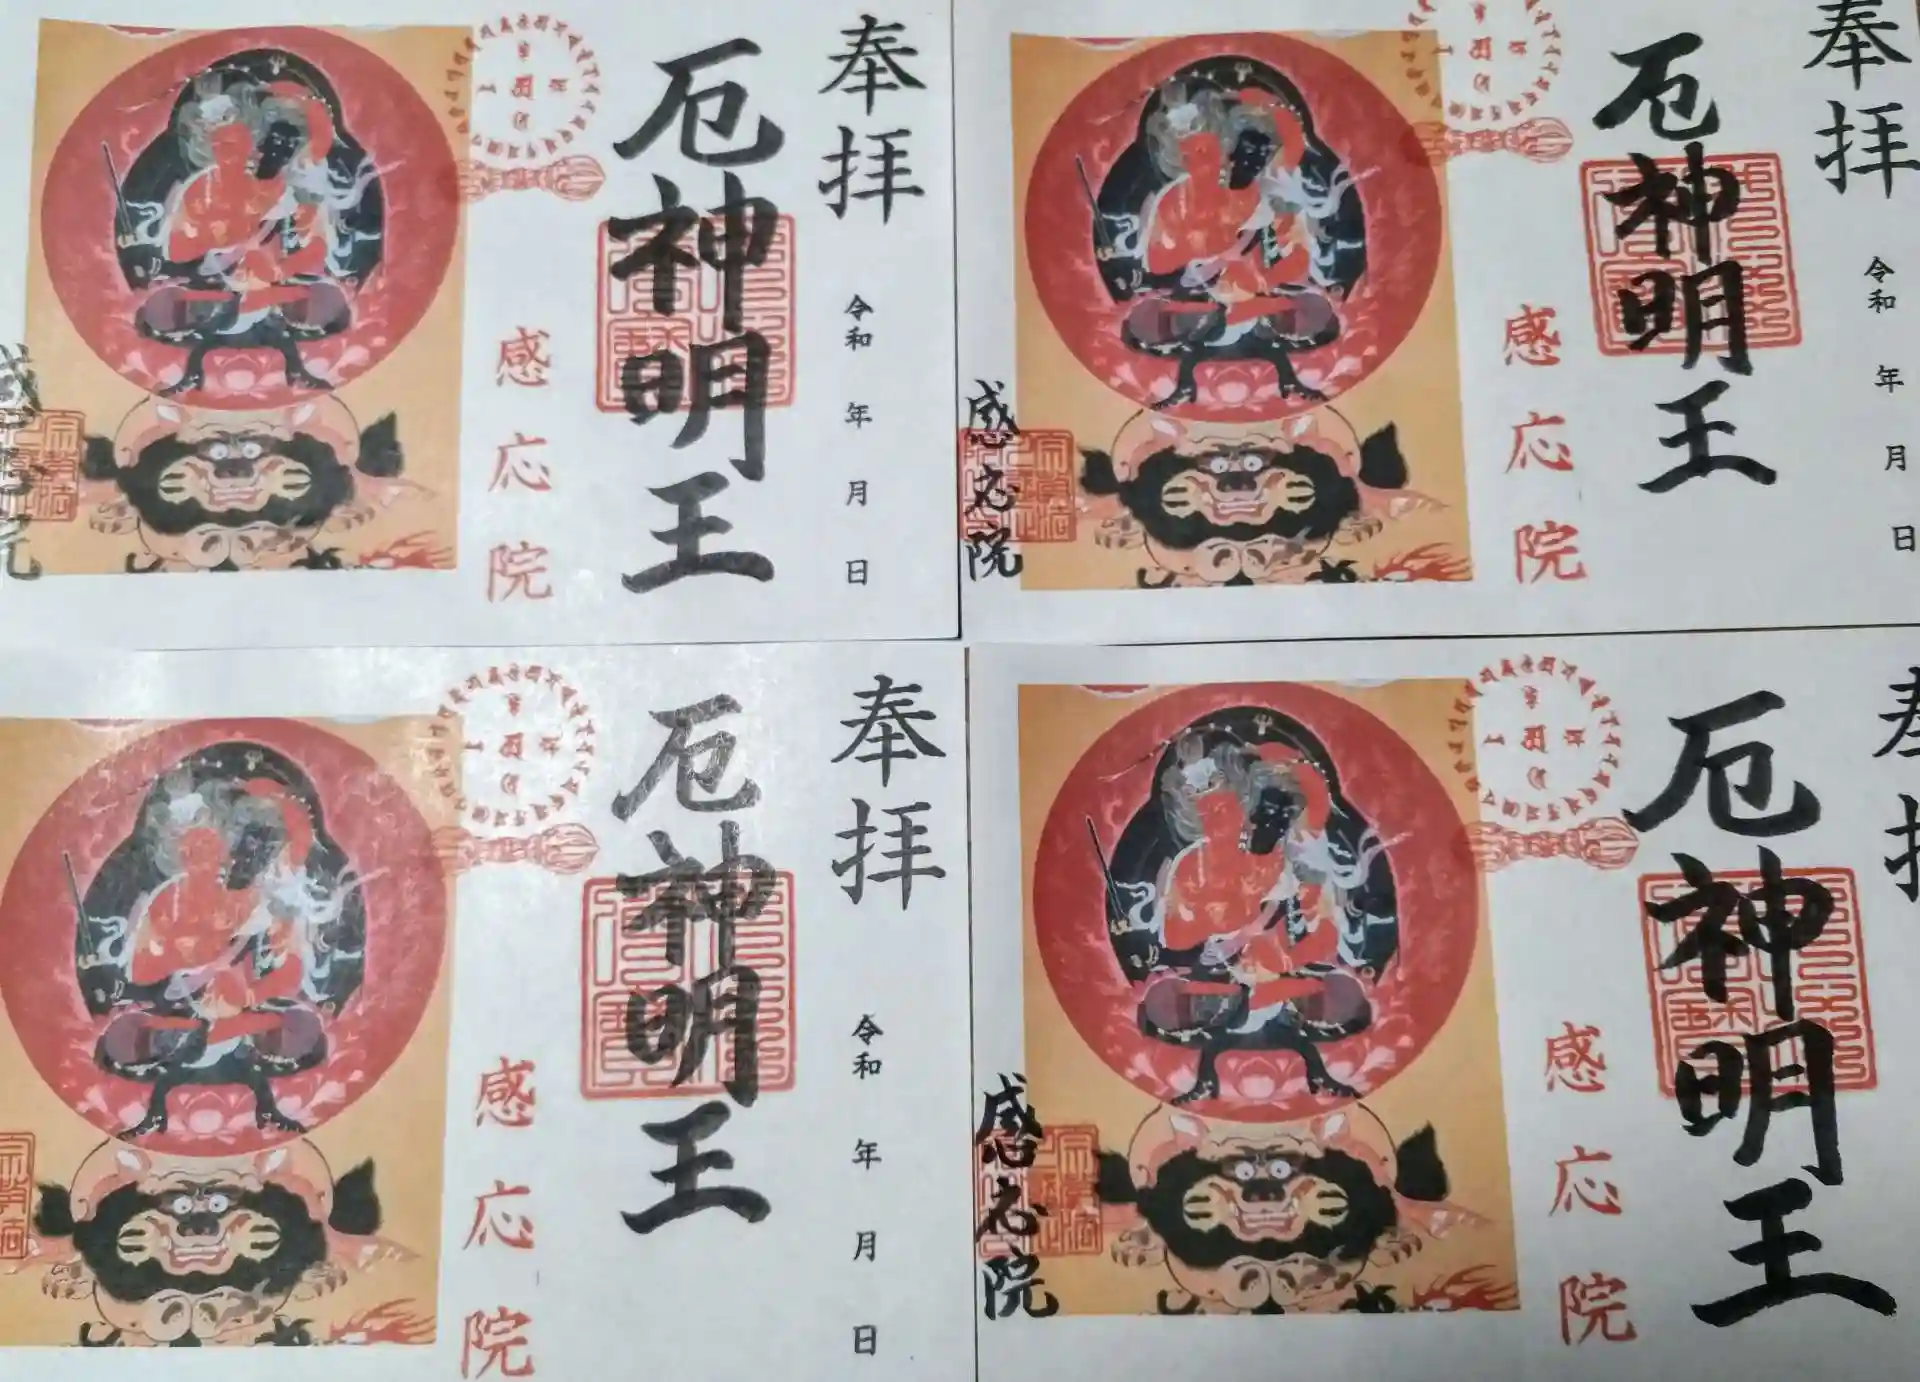 奉拝
厄神明王
令和 年 月 日
感応院
感応院
奉拝
厄神明王
令和 年 月 日
感応院
感応院
奉拝
厄神明王
令和 年 月 日
感応院
奉拝
厄神明王
感応院
感応院